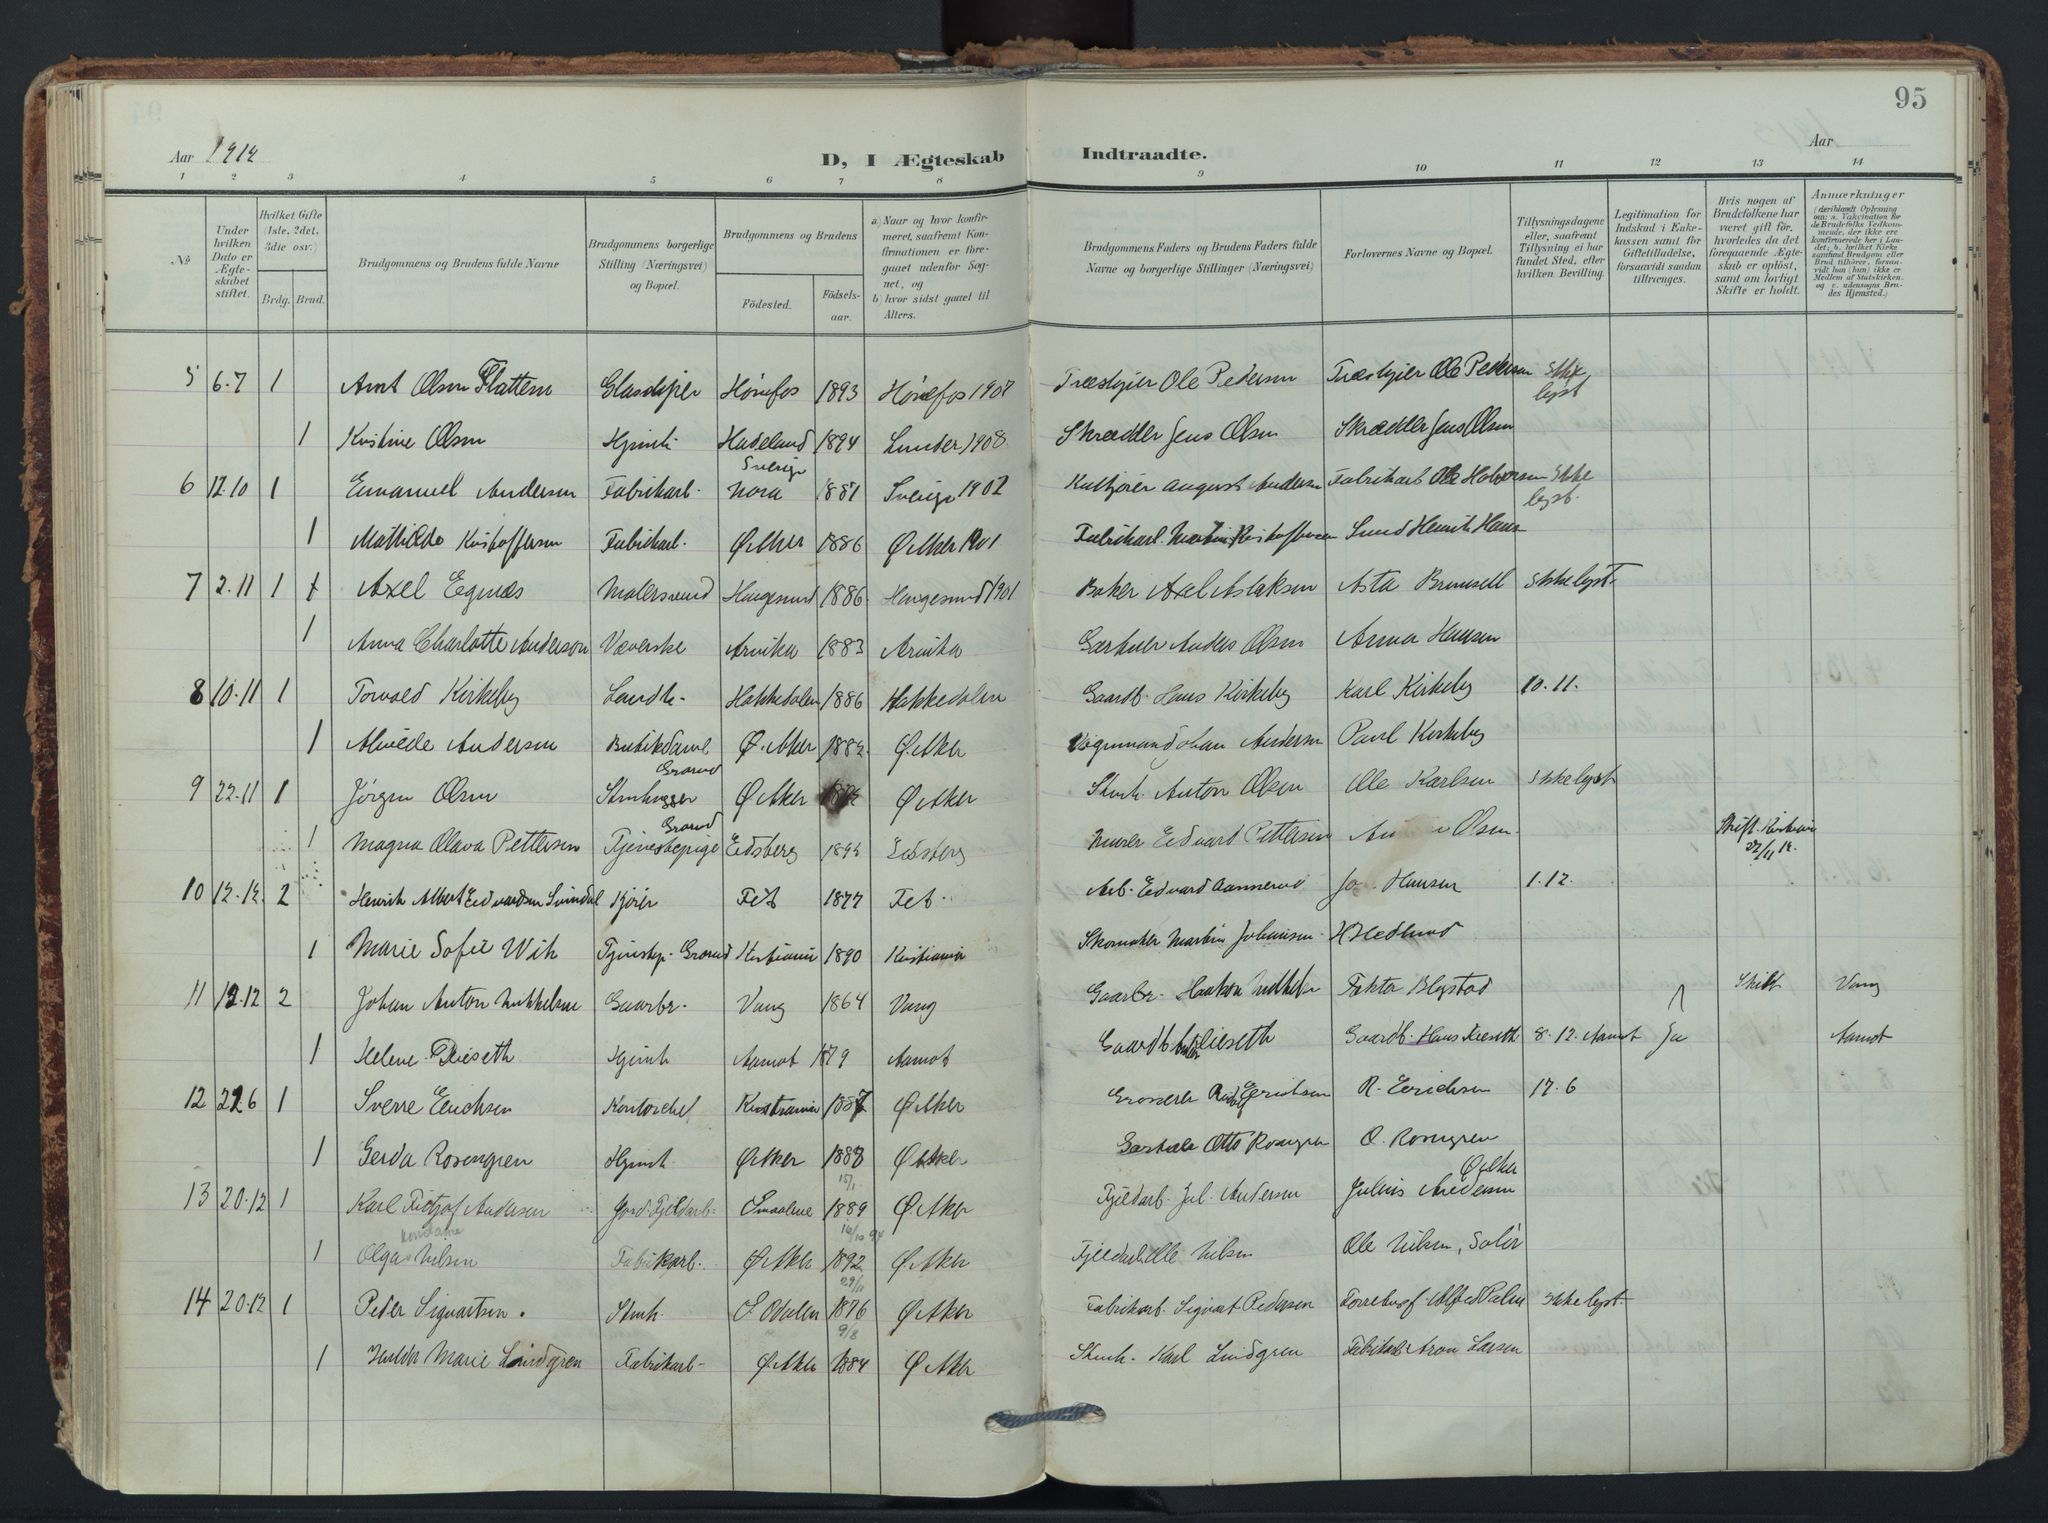 95
Aar 1912
D, I Ægteskab
Indtraadte.
Aar
1 2 3 4 5 6 7 8 9 10 11 12 13 14
№
Under hvilken Dato er Ægteskabet stiftet.
Hvilket Gifte (1ste, 2det, 3die osv.)
Brdg. Brud.
Brudgommens og Brudens fulde Navne
Brudgommens borgerlige Stilling (Næringsvei) og Bopæl.
Brudgommens og Brudens
Fødested. Fødselsaar.
a) Naar og hvor konfirmeret, saafremt Konfirmationen er foregaaet udenfor Sognet, og
b) hvor sidst gaaet til Alters.
Brudgommens Faders og Brudens Faders fulde Navne og borgerlige Stillinger (Næringsvei)
Forlovernes Navne og Bopæl.
Tillysningsdagene eller, saafremt Tillysning ei har fundet Sted, efter hvilken Bevilling.
Legitimation for Indskud i Enkekassen samt for Giftetilladelse, forsaavidt saadan tiltrænges.
Hvis nogen af Brudefolkene har været gift før, hvorledes da det foregaaende Ægteskab er opløst, samt om lovligt Skifte er holdt.
Anmærkninger (deriblandt Oplysning om: a. Vakcination for de Brudefolks Vedkommende, der ikke ere konfirmerede her i Landet; b. hvilket Kirkesamfund Brudgom eller Brud tilhører, forsaavidt han (hun) ikke er Medlem af Statskirken. og c. udensogns Brudes Hjemsted.)
5 6-7 1 Arnt Olsen Flattem Glassliper Hønefos 1893 Hønefos 1907 Træsliper Ole Pedersen Træsliper Ole Pedersen Ikke lyst
1 Kristine Olsen Hjemh. Hadeland 1894 Lunder 1908 Skrædder Jens Olsen Skrædder Jens Olsen
6 12.10 1 Emanuel Andersen Fabrikarb. Sverige Nora 1881 Sverige 1902 Kulkjører August Andersen Fabrikarb Ole Halvorsen Ikke lyst.
1 Mathilde Kristoffersen Fabrikarb. Ø. Aker 1886 Ø. Aker 1901 Fabrikarb. Martin Kristoffersen Smed Henrik Hansen
7 2.11 1 1 Axel Egnæs Malersvend Haugesund 1886 Haugesund 1901 Baker Axel Aslaksen Asta Brunsell Ikke lyst
1 Anna Charlotte Anderson Væverske Arvika 1883 Arvika Garver Anders Olsen Anna Hansen
8 10-11 1 Torvald Kirkeby Landh. Hakkedalen 1886 Hakkedalen Gaardb. Hans Kirkeby Karl Kirkeby 10.11.
1 Alvilde Andersen Butikdame Ø. Aker 1882 Ø. Aker Vognmand Johan Andersen Paul Kirkeby
9 22-11 1 Jørgen Olsen Stenhugger Grorud Ø. Aker Ø. Aker Stenh. Anton Olsen Ole Karlsen Ikke lyst
1 Magna Olava Pettersen Tjenestepige Grorud Eidsberg Eidsberg Murer Edvard Pettersen Olsen Skift. Kristiania 22/11 12.
10 12-12. 2 Henrik Albert Edvardsen Svindal Kjører Fet 1877 Fet Arb. Edvard Aannerud Hansen 1.12.
1 Marie Sofie Wik Tjenstep. Grorud Kristiania 1890 Kristiania Skomaker Martin Johansen H. Hedlund
11 12-12 2 Johan Anton Mikkelsen Gaarbr. Vang 1864 Vang Gaarbr. Haakon Faktor Blystad Skilt Vang
1 Helene Kieseth Hjemh Aamot 1879 Aamot Gaardb Kieseth Gaardb. Hans Kieseth 8.12. Aamot Ja Aamot
12 22 6 1 Sverre Erichsen Kontorchef Kristiania 1887 Ø. Aker Grosserer Rudolf Erichsen R. Erichsen 17.6
1 Gerda Rosengren Hjemh. Ø. Aker 1888 Ø. Aker Otto Rosengren O. Rosengren
13 20-12 1 Karl Fridtjof Andersen Jord. Fjeldarb. Smaalene 15/1 1889 Ø. Aker Fjeldarb. Jul. Andersen Julius Andersen Ø. Aker
1 Olga Nilsen Fabrikarb. Ø. Aker 16/10 1892 Ø. Aker Fjeldarb. Ole Nilsen Ole Nilsen, Solør
14 20-12 1 Peder Sigvartsen. Stenh. S. Odalen 29/11 1876 Ø. Aker Fabrikarb. Sigvart Pedersen Alfred Palm Ikke lyst
1 Marie Lindgren Fabrikarb. Ø. Aker 9/8 1884 Ø. Aker Stenh. Karl Lindgren Fabrikarb Aron Larsen